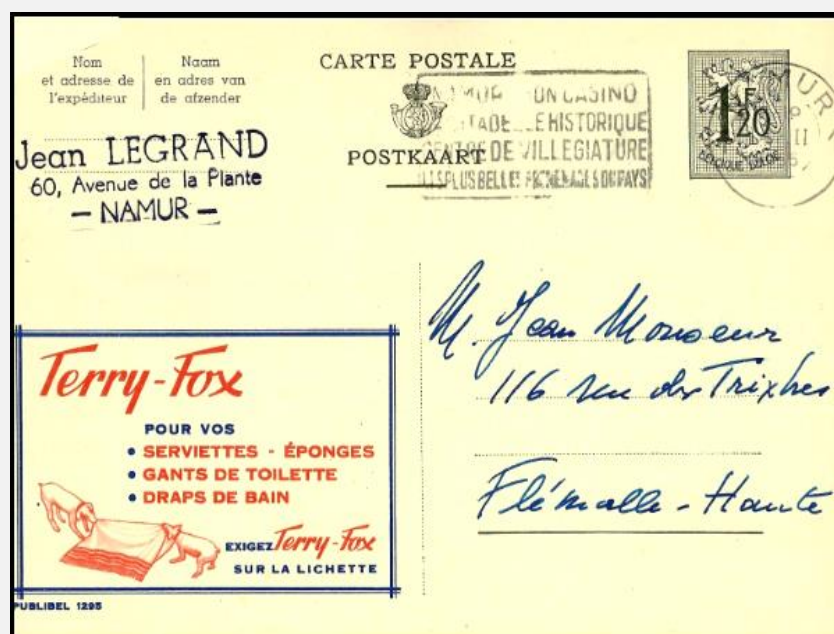 Nom
et adresse de
l'expéditeur
Naam
en adres van
de afzender
CARTE POSTALE
POSTKAART
NAMUR SON CASINO
CITADELLE HISTORIQUE
CENTRE DE VILLEGIATURE
PLUS BELLES PROMENADES DU PAYS
1F20
BELGIQUE BELGIE
Jean LEGRAND
60, Avenue de la Plante
— NAMUR —
M. Jean Monseur
116 rue des Trixhes
Flémalle-Haute
Terry-Fox
POUR VOS
• SERVIETTES - ÉPONGES
• GANTS DE TOILETTE
• DRAPS DE BAIN
EXIGEZ Terry-Fox
SUR LA LICHETTE
PUBLIBEL 1295